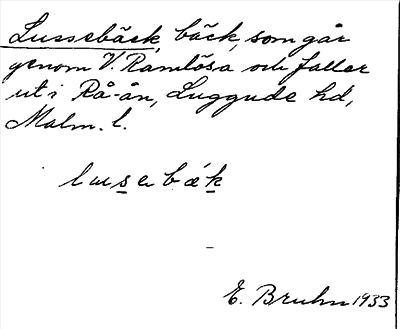 Lussebäck, bäck, som går
genom V. Ramlösa och faller
ut i Rå-ån, Luggude hd,
Malm. l.
lusebæk
E. Bruhn 1933